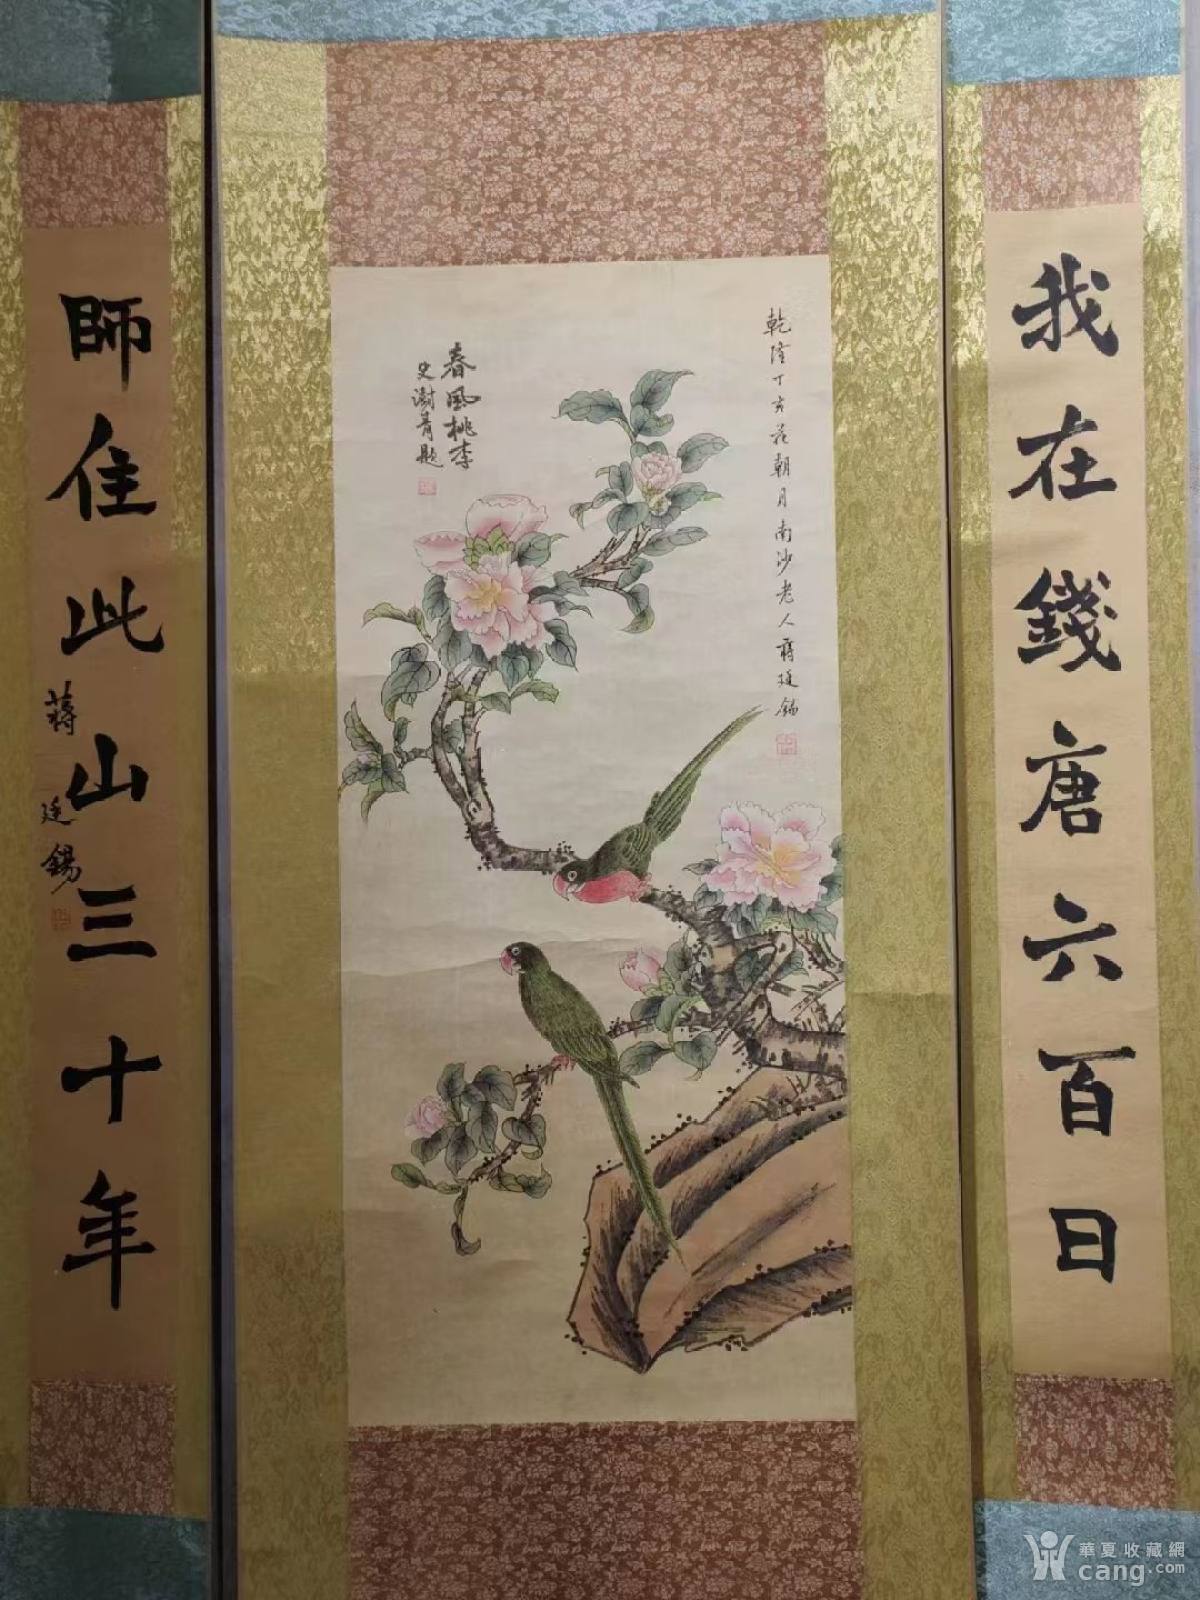 我在錢唐六百日
乾隆丁亥花朝月南沙老人蔣廷錫
春風桃李
史澍青題
師住此山三十年
蔣廷錫
華夏收藏網
cang.com